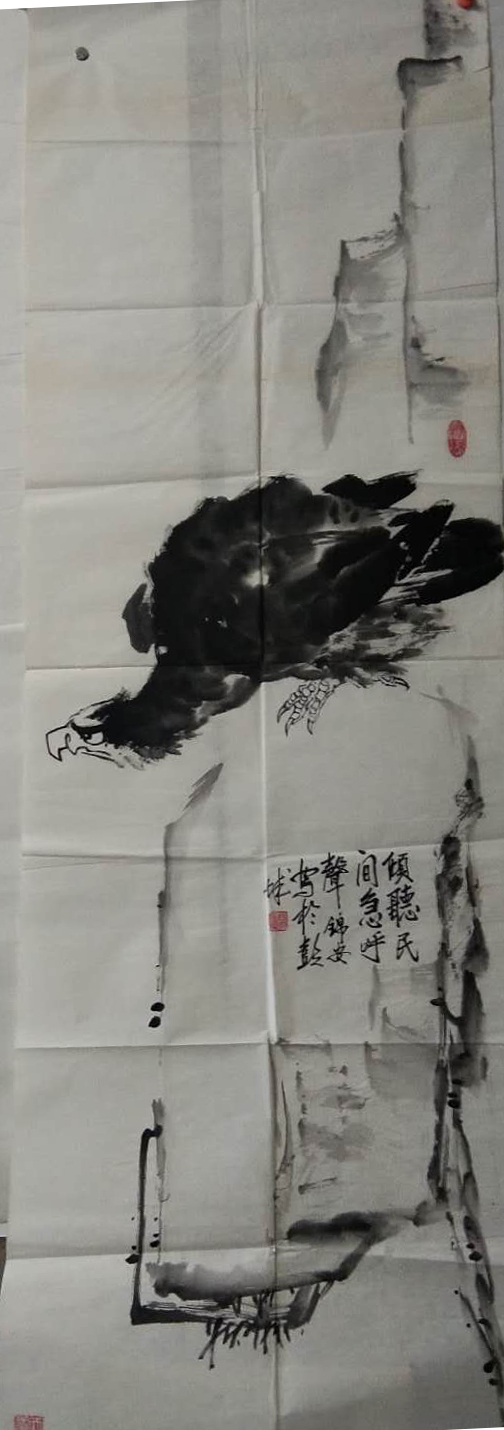 傾聽民
间急呼
聲錦安
寫於彭
城